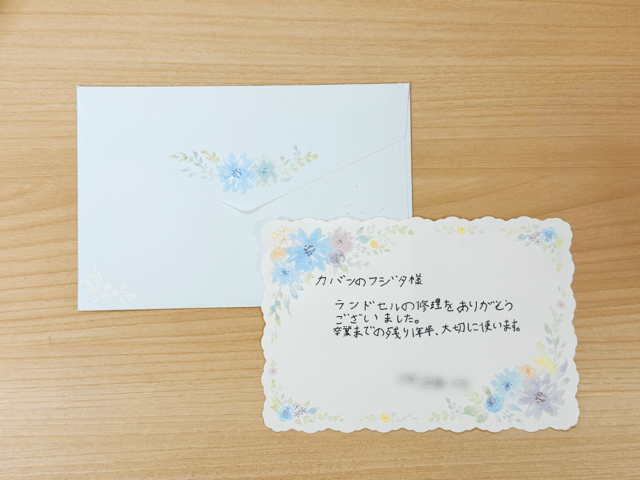 カバンのフジタ様
ランドセルの修理をありがとう
ございました。
卒業までの残り1年半、大切に使います。